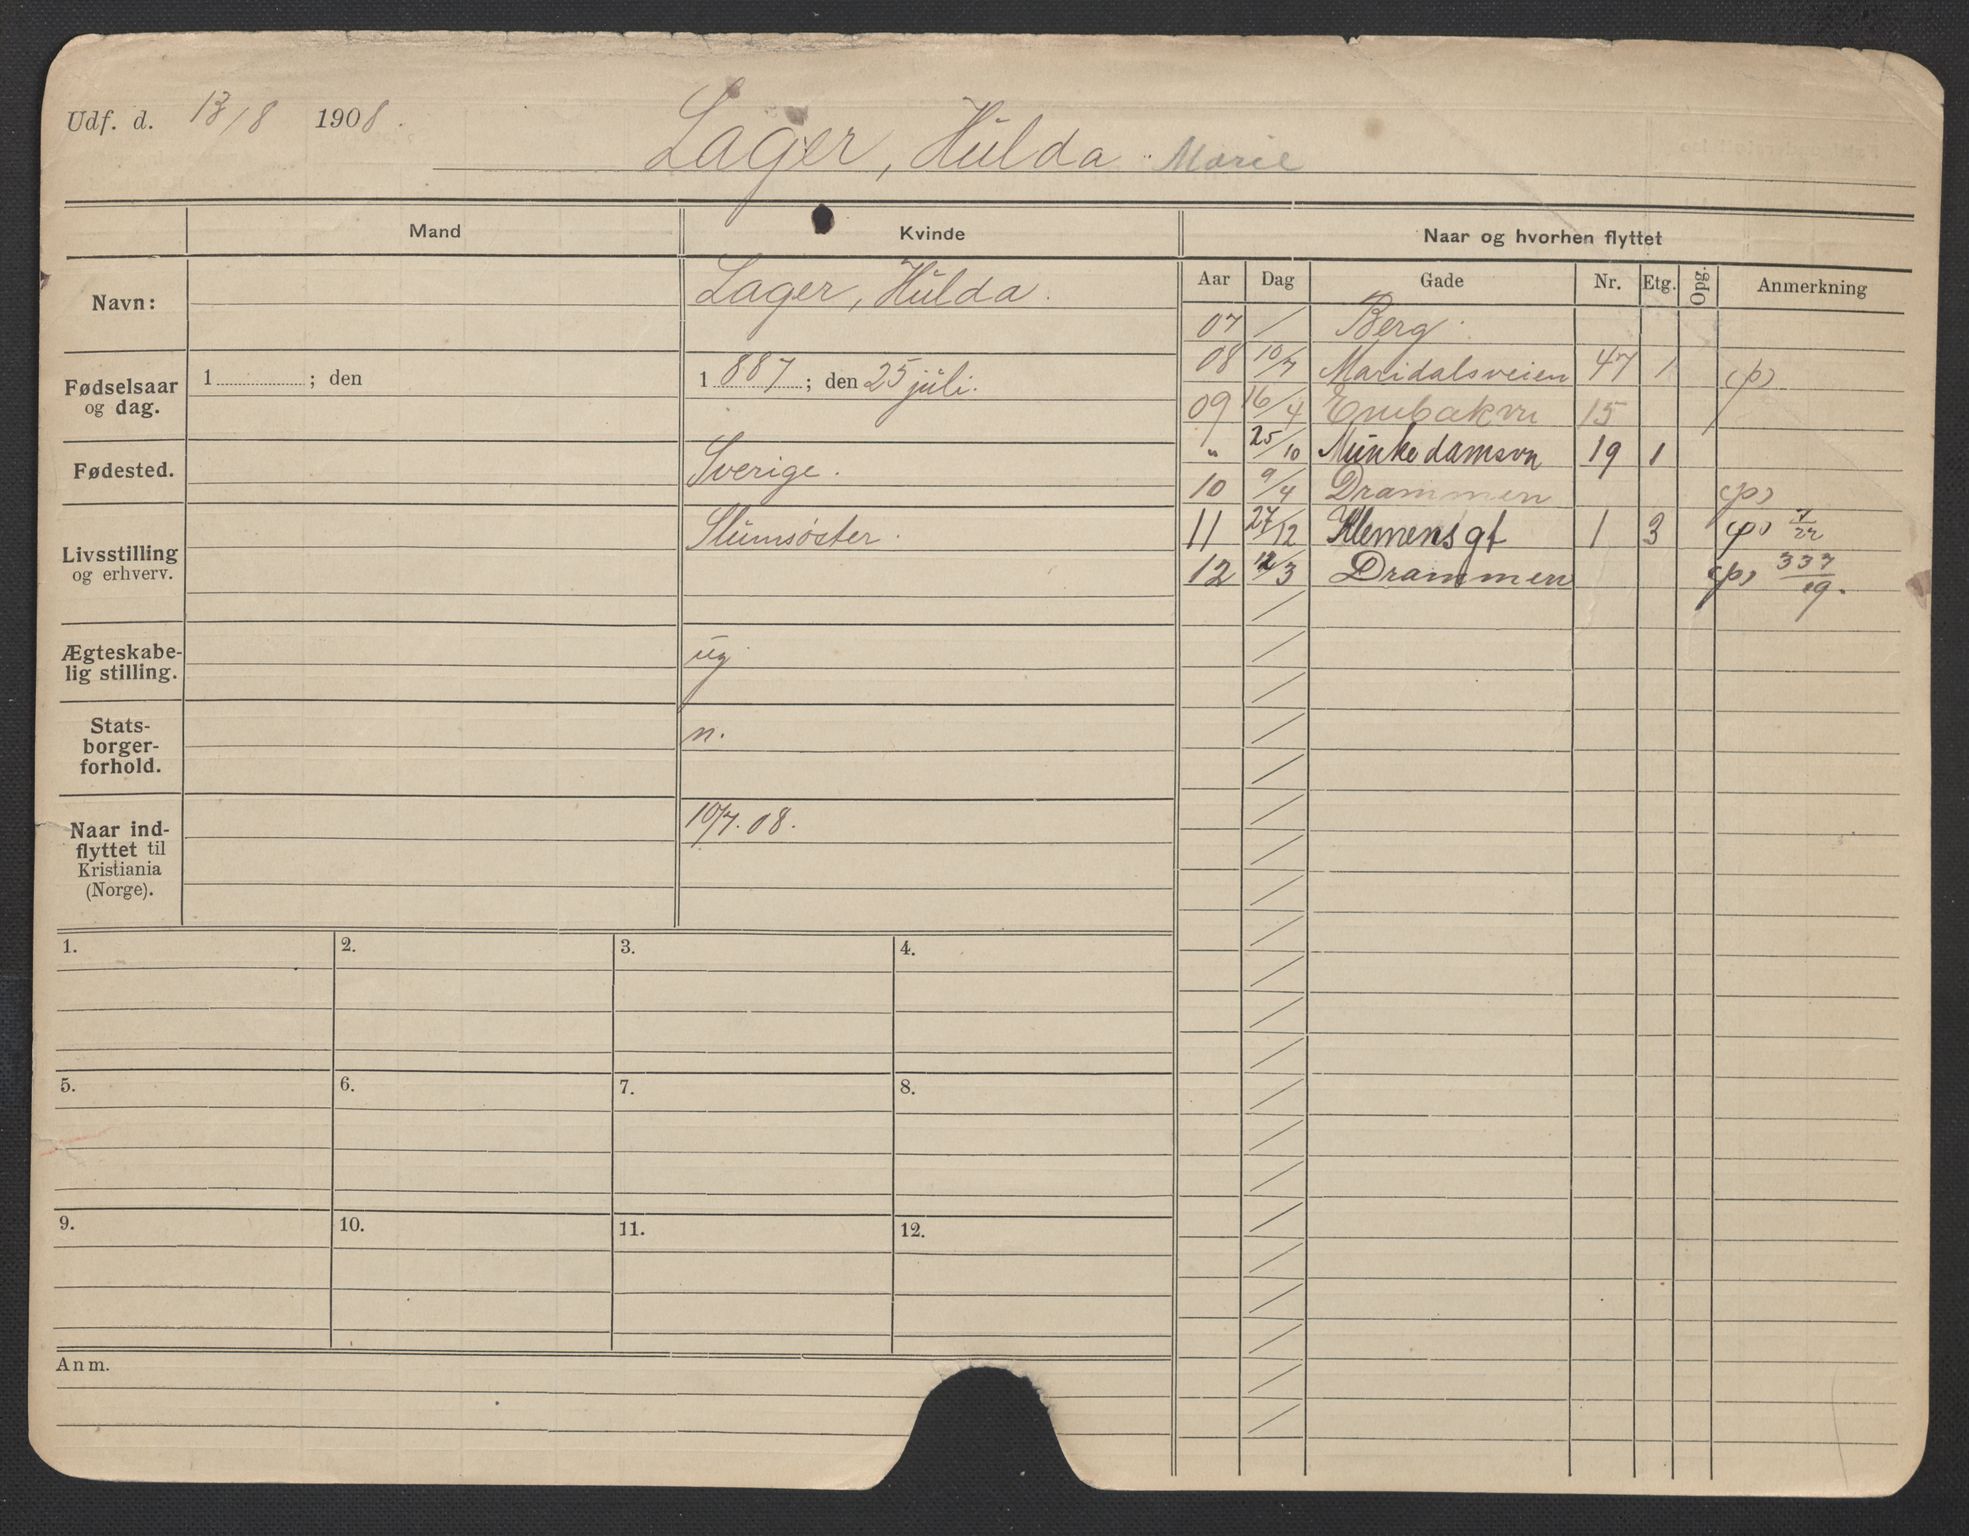 Udf. d. 13/8 1908.
Lager, Hulda Marie
Mand
Kvinde
Naar og hvorhen flyttet
Navn:
Lager, Hulda.
Fødselsaar og dag.
1 ; den
1 887 ; den 25 juli.
Fødested.
Sverige.
Livsstilling og erhverv.
Slumsøster.
Ægteskabe-
lig stilling.
ug
Stats-
borger-
forhold.
n.
Naar ind-
flyttet til
Kristiania
(Norge).
10/7. 08.
Aar Dag Gade Nr. Etg. Opg. Anmerkning
07 / Berg.
08 10/7 Maridalsveien 47 1 (p)
09 16/4 Enebakvn 15
" 25/10 Munkedamsvn 19 1
10 9/4 Drammen (p)
11 27/12 Klemensgt 1 3 (p) 7/22
12 12/3 Drammen (p) 337/19.
1. 2. 3. 4.
5. 6. 7. 8.
9. 10. 11. 12.
Anm.